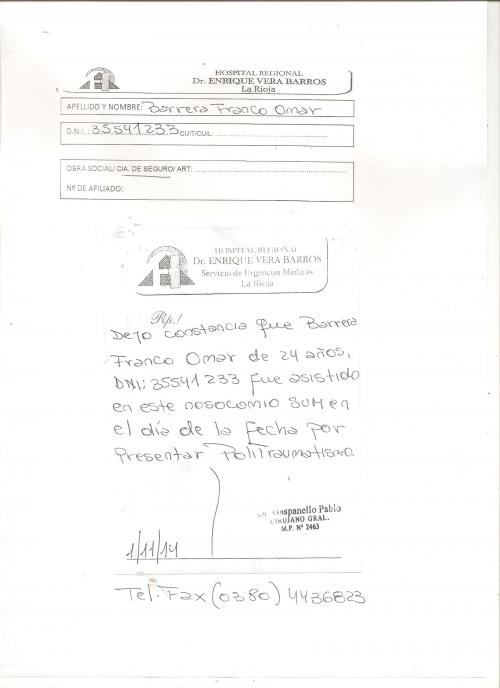 HOSPITAL REGIONAL
Dr. ENRIQUE VERA BARROS
La Rioja
APELLIDO Y NOMBRE: Barrera Franco Omar
D.N.I.: 35541233 CUIT/CUIL:
OBRA SOCIAL/ CIA. DE SEGURO/ ART:
Nº DE AFILIADO:
HOSPITAL REGIONAL
Dr. ENRIQUE VERA BARROS
Servicio de Urgencias Medicas
La Rioja
Rp./
Dejo constancia que Barrera
Franco Omar de 24 años,
DNI: 35541233 fue asistido
en este nosocomio SUM en
el día de la fecha por
presentar Politraumatismo.
Pablo
CIRUJANO GRAL.
M.P. Nº 2463
1/11/14
Tel. Fax (0380) 4436823